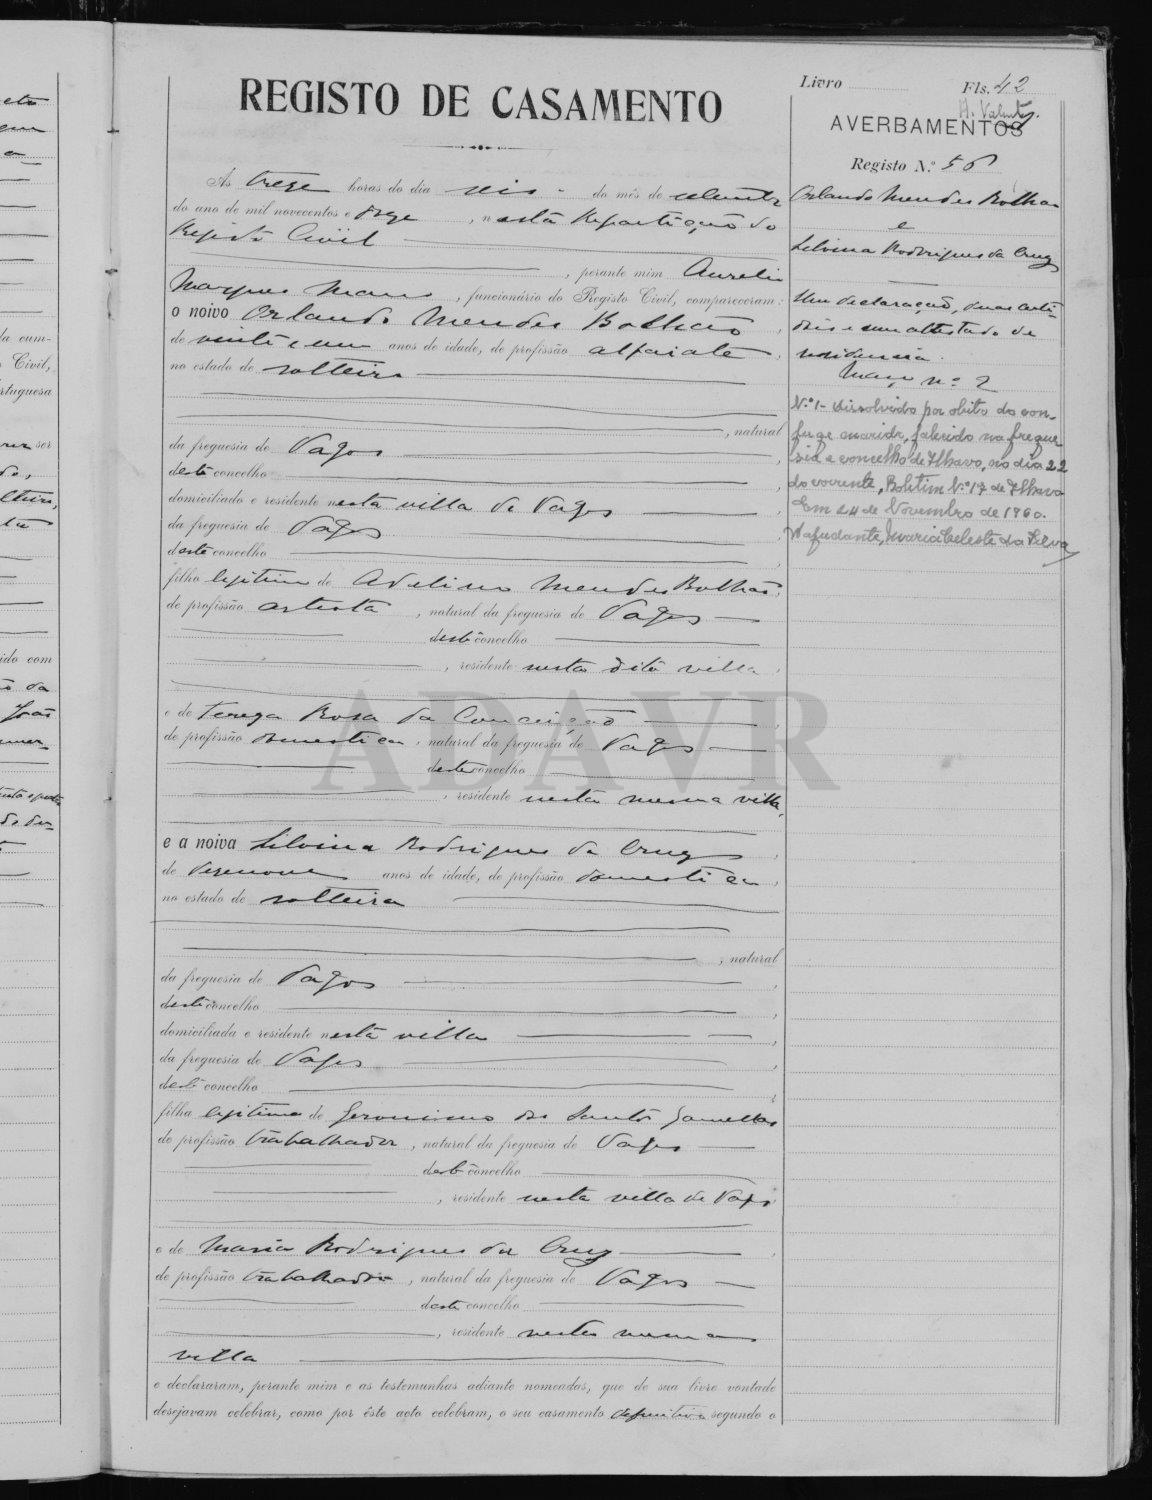 REGISTO DE CASAMENTO
Ás treze horas do dia seis do mês de
do ano de mil novecentos e doze, nesta Repartição do
Registo Civil
, perante mim Aurelio
Marques Mano, funcionário do Registo Civil, compareceram:
o noivo Orlando Mendes Bolhão,
de vinte e um anos de idade, de profissão alfaiate,
no estado de solteiro
, natural
da freguesia de Vagos,
deste concelho,
domiciliado e residente nesta villa de Vagos
da freguesia de Vagos,
deste concelho,
filho legitimo de Adelino Mendes Bolhão,
de profissão artista, natural da freguesia de Vagos
deste concelho
, residente nesta dita villa,
e de Tereza Rosa da Conceição,
de profissão domestica, natural da freguesia de Vagos
deste concelho
, residente nesta mesma villa,
e a noiva Silvina Rodrigues da Cruz,
de dezenove anos de idade, de profissão domestica,
no estado de solteira
, natural
da freguesia de Vagos,
deste concelho,
domiciliada e residente nesta villa,
da freguesia de Vagos,
deste concelho,
filha legitima de Geronimo dos Santos
de profissão trabalhador, natural da freguesia de Vagos
deste concelho
, residente nesta villa de Vagos
e de Maria Rodrigues da Cruz,
de profissão, natural da freguesia de Vagos
deste concelho
, residente nesta mesma
villa
e declararam, perante mim e as testemunhas adiante nomeadas, que de sua livre vontade
desejavam celebrar, como por êste acto celebram, o seu casamento definitivo segundo o
Livro Fls. 42
AVERBAMENTOS
Registo N.º 56
Orlando Mendes Bolhão
e
Silvina Rodrigues da Cruz
Uma declaração, duas certi-
dões e um attestado de
residencia.
Maço nº 2
N.º 1- Dissolvido por obito do con-
juge marido, falecido na fregue
sia e concelho de Ilhavo, no dia 22
do corrente, Boletim N.º 17 de Ilhavo
Em 24 de Novembro de 1960.
A ajudante, Maria Celeste da Silva
ADAVR